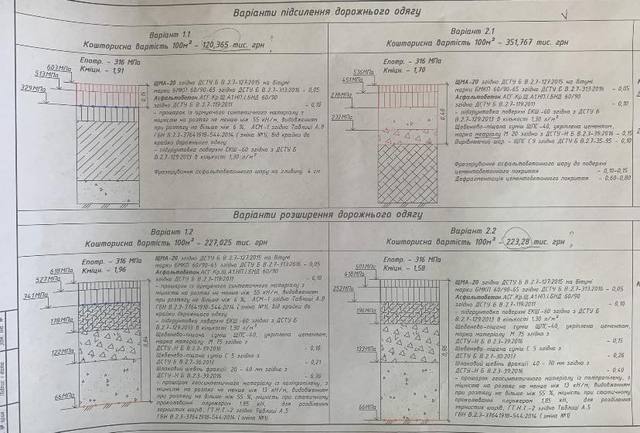 Варіанти підсилення дорожнього одягу
Варіант 1.1
Кошторисна вартість 100м² - 120,365 тис. грн
Eпотр. - 316 МПа
Kміцн. - 1,91
603 МПа
513 МПа
329 МПа
ЩМА-20 згідно ДСТУ Б В.2.7-127:2015 на бітумі
марки БМКП 60/90-65 згідно ДСТУ Б В.2.7-313:2016 - 0,05
Асфальтобетон АСГ.Кр.Щ.А1.НП.І.БНД 60/90
згідно ДСТУ Б В.2.7-119:2011 - 0,10
- прошарок із армуючого синтетичного матеріалу з
міцністю на розтяг не менше ніж 55 кН/м, видовженням
при розтягу не більше ніж 6 %, АСМ-1 згідно Таблиці А.9
ГБН В.2.3-37641918-544:2014 ( зміна №1), від крайки до
крайки дорожнього одягу
- підгрунтовка поверхні ЕКШ-60 згідно з ДСТУ
Б В.2.7-129:2013 в кількості 1,30 л/м²
Фрезерування асфальтобетонного шару на глибину 4 см
Варіант 2.1
Кошторисна вартість 100м² - 351,767 тис. грн
Eпотр. - 316 МПа
Kміцн. - 1,70
536 МПа
451 МПа
232 МПа
ЩМА-20 згідно ДСТУ Б В.2.7-127:2015 на бітумі
марки БМКП 60/90-65 згідно ДСТУ Б В.2.7-313:2016 - 0,05
Асфальтобетон АСГ.Кр.Щ.А1.НП.І.БНД 60/90
згідно ДСТУ Б В.2.7-119:2011 - 0,10
- підгрунтовка поверхні ЕКШ-60 згідно з ДСТУ
Б В.2.7-129:2013 в кількості 1,30 л/м²
Щебенево-піщана суміш ЩПС-40, укріплена цементом,
марка матеріалу М 20 згідно з ДСТУ-Н Б В.2.3-39:2016 - 0,15
Вирівнюючий шар - ЩПС С 9 згідно ДСТУ Б В.2.7-35-95 - 0,10
Фрезерування асфальтобетонного шару до поверхні
цементобетонного покриття - 0,10-0,15
Дефрагментація цементобетонного покриття - 0,60-0,80
Варіанти розширення дорожнього одягу
Варіант 1.2
Кошторисна вартість 100м² - 227,025 тис. грн
Eпотр. - 316 МПа
Kміцн. - 1,96
618 МПа
527 МПа
343 МПа
178 МПа
122 МПа
66 МПа
ЩМА-20 згідно ДСТУ Б В.2.7-127:2015 на бітумі
марки БМКП 60/90-65 згідно ДСТУ Б В.2.7-313:2016 - 0,05
Асфальтобетон АСГ.Кр.Щ.А1.НП.І.БНД 60/90
згідно ДСТУ Б В.2.7-119:2011 - 0,10
- прошарок із армуючого синтетичного матеріалу з
міцністю на розтяг не менше ніж 55 кН/м, видовженням
при розтягу не більше ніж 6 %, АСМ-1 згідно Таблиці А.9
ГБН В.2.3-37641918-544:2014 ( зміна №1), від крайки до
крайки дорожнього одягу
- підгрунтовка поверхні ЕКШ-60 згідно з ДСТУ
Б В.2.7-129:2013 в кількості 1,30 л/м²
Щебенево-піщана суміш ЩПС-40, укріплена цементом,
марка матеріалу М 75 згідно з
ДСТУ-Н Б В.2.3-39:2016 - 0,18
Щебенево-піщана суміш С 5 згідно з
ДСТУ Б В.2.7-30:2013 - 0,21
Шлаковий щебінь фракції 20 - 40 мм згідно з
ДСТУ-Н Б В.2.3-39:2016 - 0,30
- прошарок геосинтетичного матеріалу із поліпропілену, з
міцністю на розтяг не менше ніж 13 кН/м, видовженням
при розтягу не більше ніж 55 %, міцність при статичному
проколюванні плунжером 1,85 кН, для розділення
зернистих шарів, ГТ.Н.Г.-2 згідно Таблиці А.5
ГБН В.2.3-37641918-544:2014 ( зміна №1)
Варіант 2.2
Кошторисна вартість 100м² - 223,28 тис. грн
Eпотр. - 316 МПа
Kміцн. - 1,58
501 МПа
418 МПа
252 МПа
66 МПа
ЩМА-20 згідно ДСТУ Б В.2.7-127:2015 на бітумі
марки БМКП 60/90-65 згідно ДСТУ Б В.2.7-313:2016 - 0,05
Асфальтобетон АСГ.Кр.Щ.А1.НП.І.БНД 60/90
згідно ДСТУ Б В.2.7-119:2011 - 0,10
- підгрунтовка поверхні ЕКШ-60 згідно з ДСТУ
Б В.2.7-129:2013 в кількості 1,30 л/м²
Щебенево-піщана суміш ЩПС-40, укріплена цементом,
марка матеріалу М 75 згідно з
ДСТУ-Н Б В.2.3-39:2016 - 0,15
Щебенево-піщана суміш С 5 згідно з
ДСТУ Б В.2.7-30:2013 - 0,26
Шлаковий щебінь фракції 40 - 70 мм згідно з
ДСТУ-Н Б В.2.3-39:2016 - 0,40
- прошарок геосинтетичного матеріалу із поліпропілену, з
міцністю на розтяг не менше ніж 13 кН/м, видовженням
при розтягу не більше ніж 55 %, міцність при статичному
проколюванні плунжером 1,85 кН, для розділення
зернистих шарів, ГТ.Н.Г.-2 згідно Таблиці А.5
ГБН В.2.3-37641918-544:2014 ( зміна №1)